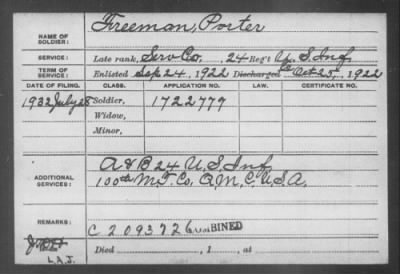 NAME OF SOLDIER: Freeman, Porter
SERVICE: Late rank, Serv Co. 24 Reg't U. S. Inf.
TERM OF SERVICE: Enlisted Sep 24, 1922 Discharged Oct 25, 1922
DATE OF FILING. CLASS. APPLICATION NO. LAW. CERTIFICATE NO.
1932 July 28 Soldier, 1722779
Widow,
Minor,
ADDITIONAL SERVICES: A & B 24 U.S. Inf
100th M.T. Co. Q.M.C. U.S.A.
REMARKS: C 2093726 COMBINED
L.A.J.
Died , 1 , at